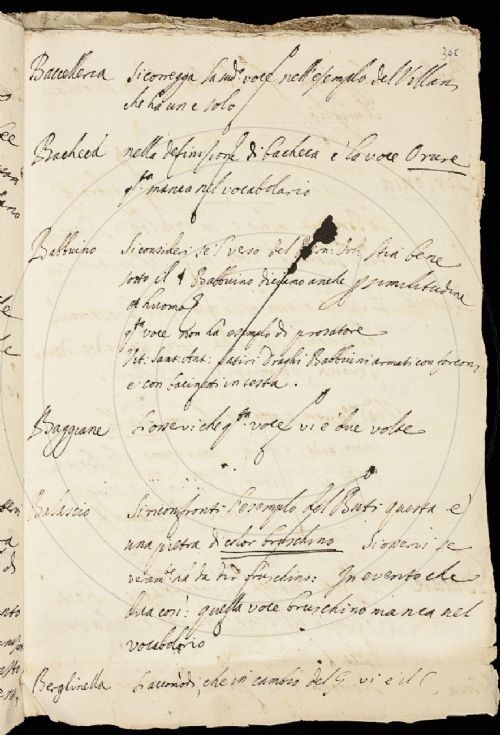 Baccelleria Si corregga la sud.ª voce nell'esempio del Villan,
che ha un e solo
Bacheca nella definizione di bacheca è la voce Orure
q.ta manca nel vocabolario
Babbuino Si consideri se 'l verso del stia bene
sotto il Babbuino diciamo anche p similitudine
ad huomo
q.ta voce non ha esempio di prosatore
Vit. Sant. Ant. Satiri Draghi Babbuini armati con forconi,
e con bacinetti in testa.
Baggiane Si osservi che q.ta voce vi è due volte
Balascio Si riconfronti l'esempio del Buti questa è
una pietra di color bruschino Si osservi se
veram.te ha da dir fruschino: In evento che
dica così: quella voce bruschino manca nel
vocabolario
Berglinella Si accomodi, che in cambio del G vi è il C